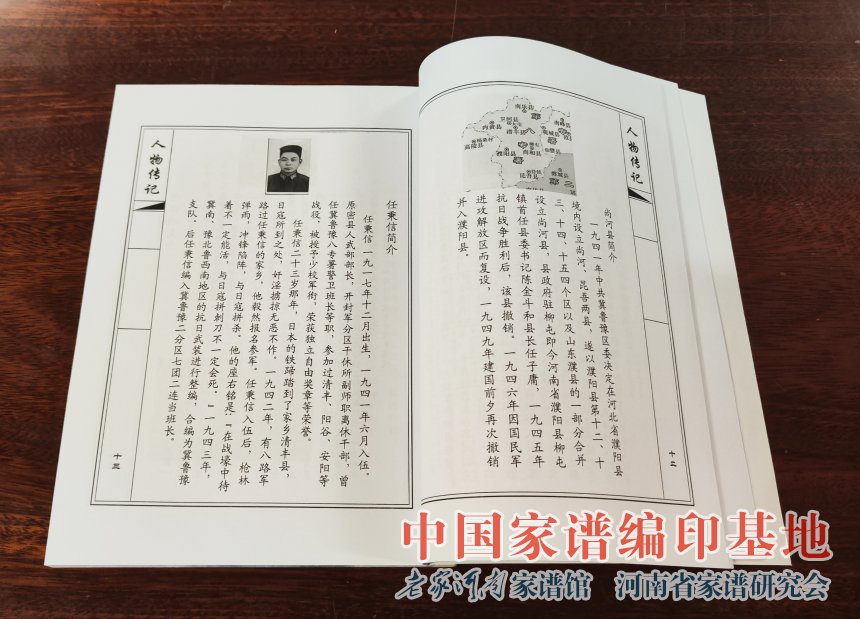 人物传记
尚河县简介
一九四一年中共冀鲁豫区委决定在河北省濮阳县
境内设立尚河、昆吾两县，遂以濮阳县第十二、十
三、十四、十五四个区以及山东濮县的一部分合并
设立尚河县，县政府驻柳屯即今河南省濮阳县柳屯
镇首任县委书记陈金斗和县长任子庸，一九四五年
抗日战争胜利后，该县撤销。一九四六年因国民军
进攻解放区而复设，一九四九年建国前夕再次撤销
并入濮阳县。
南乐县
卫河县
内黄县
清丰县
高陵县
濮阳县
尚和县
昆吾县
鄄城县
第八专署
第二
十二
人物传记
任秉信简介
任秉信一九一七年十二月出生，一九四一年六月入伍。
原密县人武部部长，开封军分区干休所副师职离休干部，曾
任冀鲁豫八专署警卫班长等职，参加过清丰、阳谷、安阳等
战役，被授予少校军衔，荣获独立自由奖章等荣誉。
任秉信二十三岁那年，日本的铁蹄踏到了家乡清丰县，
日寇所到之处，奸淫掳掠无恶不作。一九四二年，有八路军
路过任秉信的家乡，他毅然报名参军。任秉信入伍后，枪林
弹雨，冲锋陷阵，与日寇拼杀。他的座右铭是：“在战壕中待
着不一定能活，与日寇拼刺刀不一定会死。”一九四三年，
冀南、豫北鲁西南地区的抗日武装进行整编，合编为冀鲁豫
支队。后任秉信编入冀鲁豫二分区七团二连当班长。
十三
中国家谱编印基地
老家河南家谱馆 河南省家谱研究会